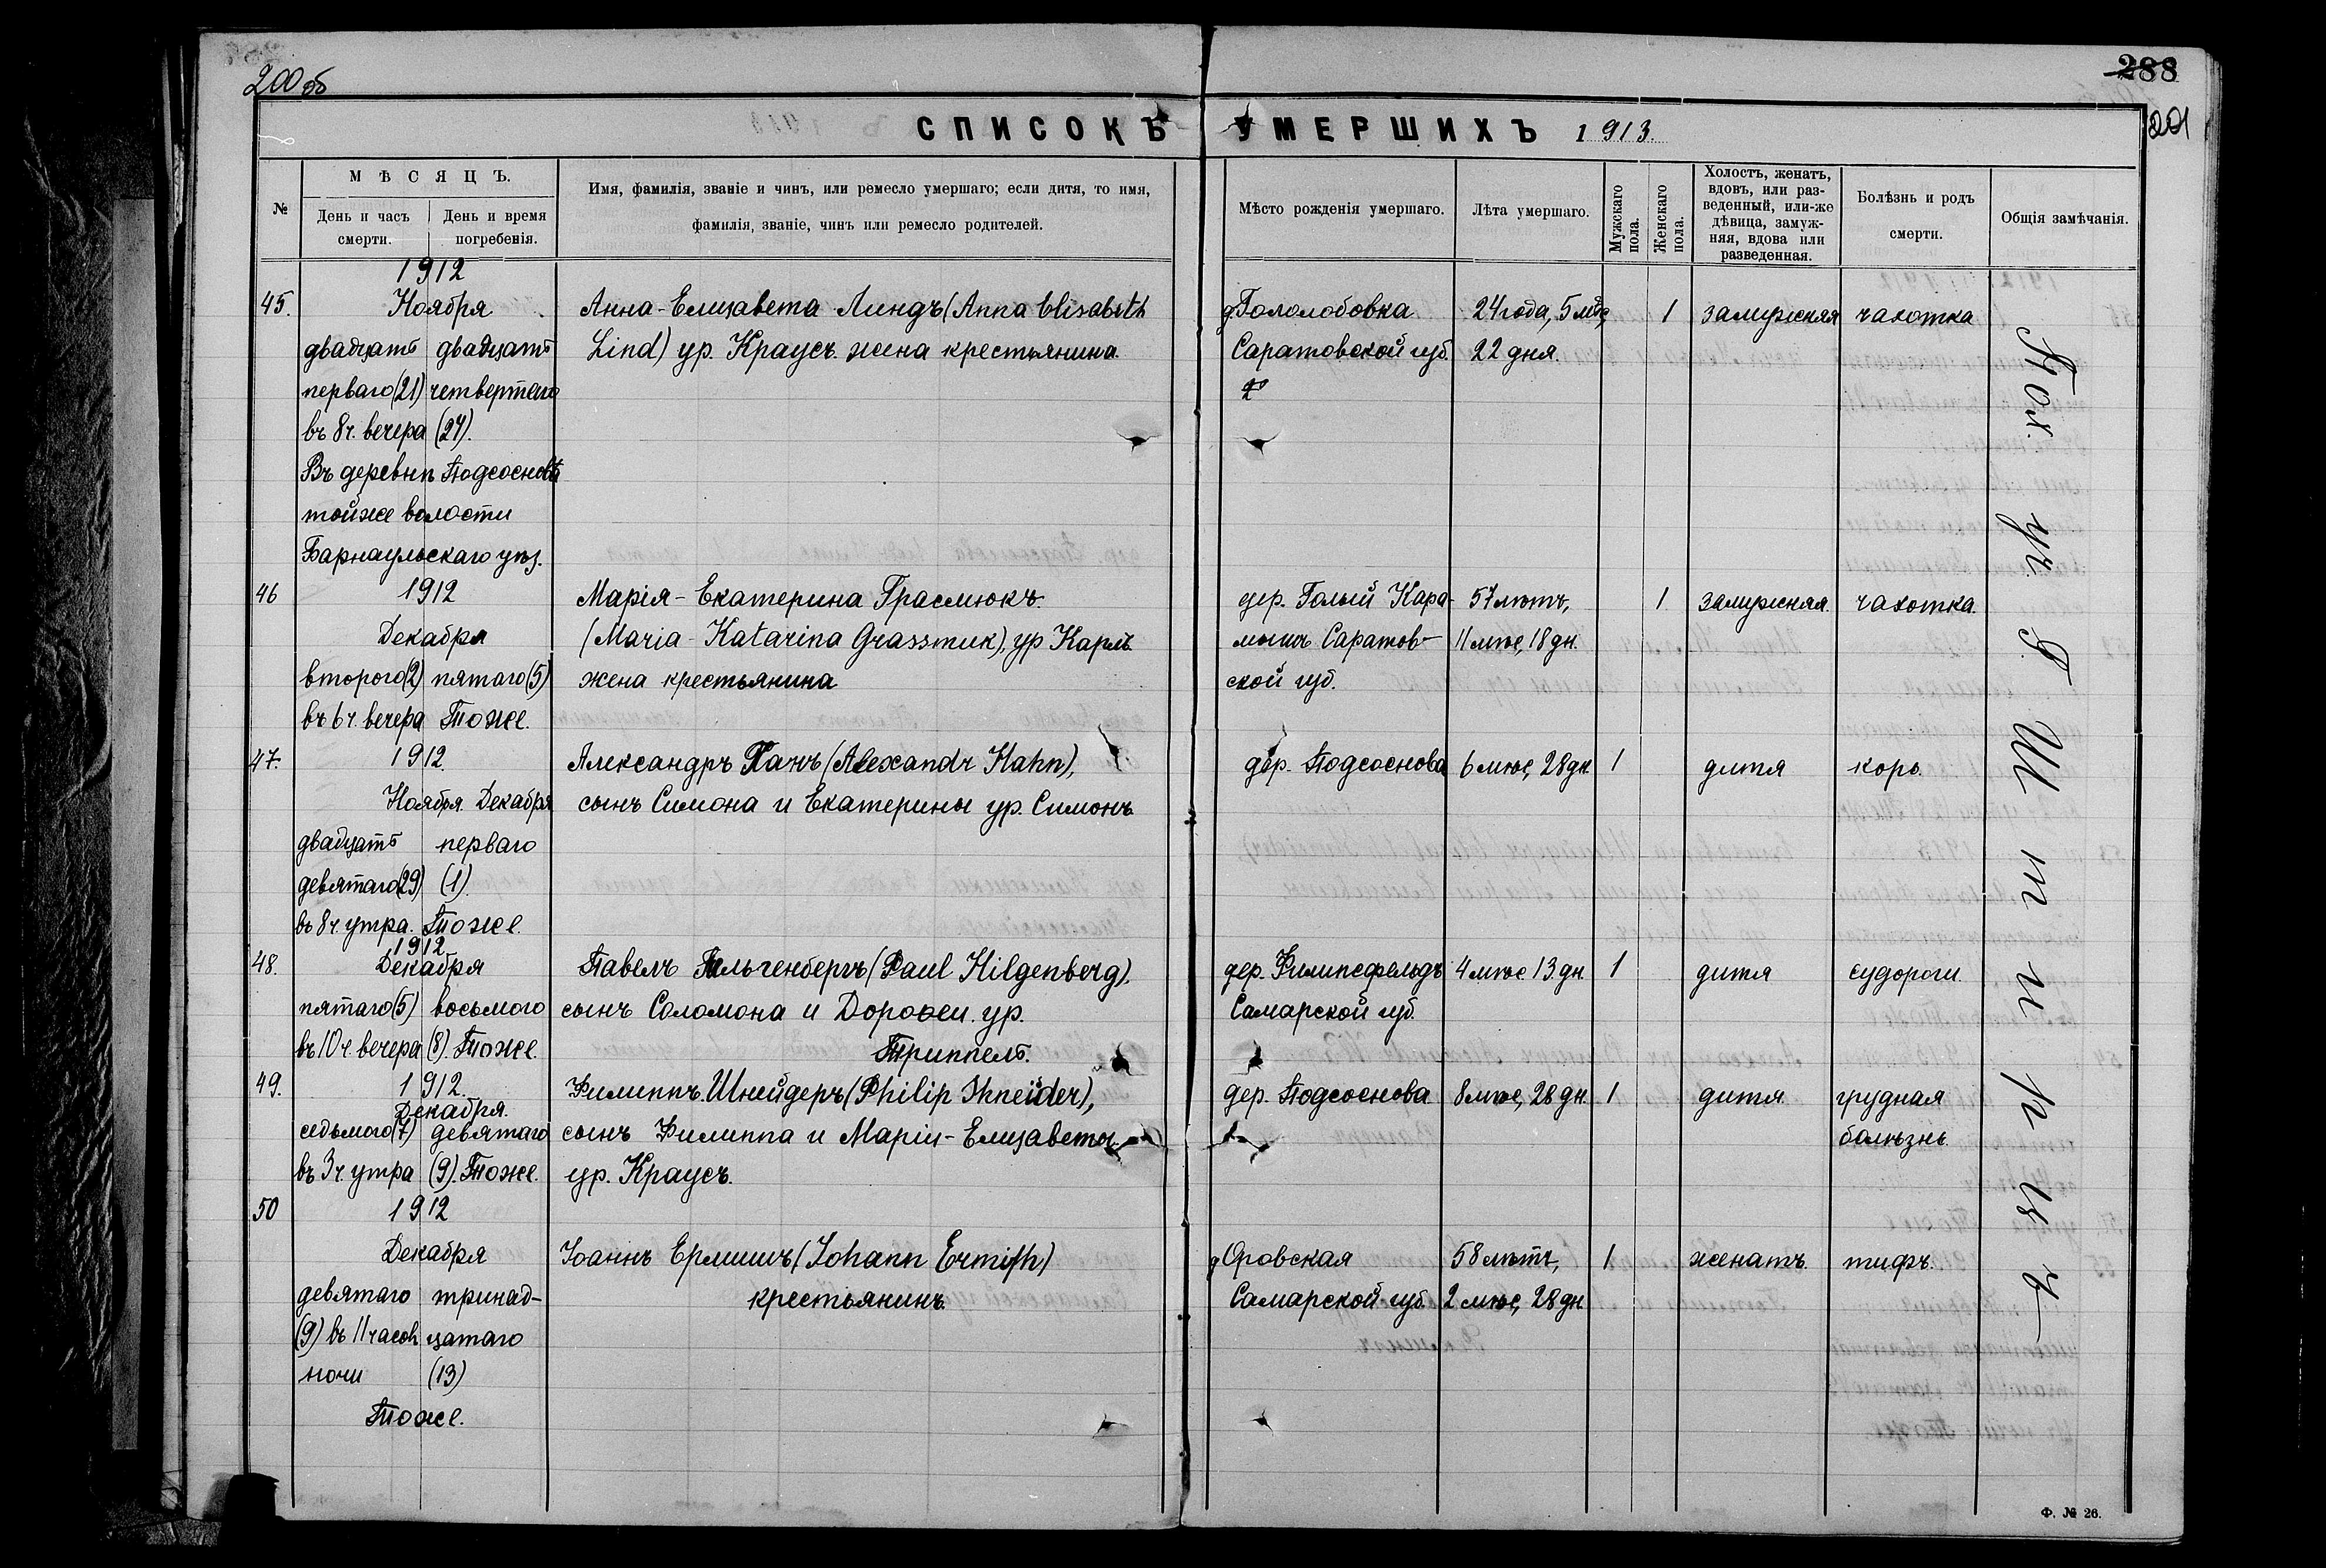 200 об
288
201
СПИСОКЪ УМЕРШИХЪ 1913.
№
МѢСЯЦЪ.
День и часъ смерти.
День и время погребенія.
Имя, фамилія, званіе и чинъ, или ремесло умершаго; если дитя, то имя,
фамилія, званіе, чинъ или ремесло родителей.
Мѣсто рожденія умершаго.
Лѣта умершаго.
Мужскаго пола.
Женскаго пола.
Холостъ, женатъ,
вдовъ, или раз-
веденный, или-же
дѣвица, замуж-
няя, вдова или
разведенная.
Болѣзнь и родъ
смерти.
Общія замѣчанія.
1912
45. Ноября Анна-Елизавета Линдъ (Anna Elisabeth д. Гололобовка 24 года, 5 мѣс, 1 замужняя чахотка
двадцать двадцать Lind) ур. Краусъ. жена крестьянина. Саратовской губ. 22 дня.
перваго (21) четвертаго
въ 8 ч. вечера (24).
Въ деревнѣ Подсосновѣ
тойже волости
Барнаульскаго уѣз.
46 1912 Марія-Екатерина Грасмюкъ. дер. Голый Кара- 57 лѣтъ, 1 замужняя. чахотка.
Декабря (Maria-Katarina Grassmuk), ур Карлъ. мышъ Саратов- 11 мѣс, 18 дн.
второго (2) пятаго (5) жена крестьянина ской губ.
въ 6 ч. вечера Тоже.
47. 1912. Александръ Ганъ (Alexandr Hahn), дер. Подсоснова 6 мѣс, 28 дн. 1 дитя корь.
Ноября Декабря сынъ Симона и Екатерины ур. Симонъ
двадцать перваго
девятаго (29) (1).
въ 8 ч. утра. Тоже.
1912
48. Декабря Павелъ Гильгенбергъ (Paul Hilgenberg), дер. Филипсфельдъ 4 мѣс. 13 дн. 1 дитя судороги.
пятаго (5) восьмого сынъ Соломона и Дороѳеи. ур. Самарской губ.
въ 10 ч. вечера (8). Тоже. Триппель.
49. 1912. Филиппъ Шнейдеръ (Philip Schneider), дер. Подсоснова 8 мѣс, 28 дн. 1 дитя грудная
Декабря.
седьмого (7) девятаго сынъ Филиппа и Маріи-Елизаветы болѣзнь.
въ 3 ч. утра (9). Тоже. ур. Краусъ.
50 1912
Декабря Іоаннъ Ермишъ (Johann Ermisch) д Оровская 58 лѣтъ, 1 женатъ. тифъ.
девятаго тринад- крестьянинъ. Самарской губ. 2 мѣс, 28 дн.
(9) въ 11 часов цатаго
ночи (13)
Тоже.
Ф. № 26.